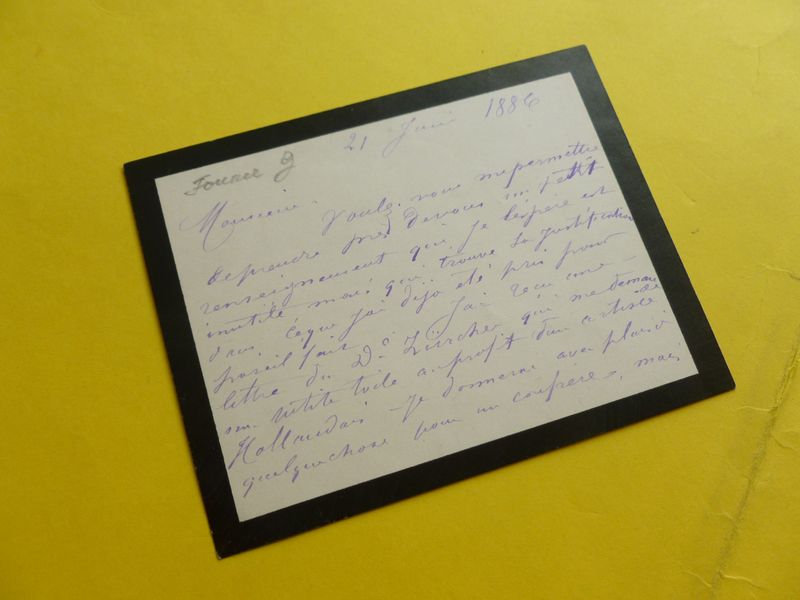 Fource g
21 Juin 1886
Monsieur.
Voulez-vous me permettre
de prendre près de vous un petit
renseignement qui je l'espère est
inutile mais qui trouve sa justification
dans ce que j'ai déjà été pris pour
pareil fait. J'ai reçu une
lettre du Dr Zürcher qui me demande
une petite toile au profit d'un artiste
Hollandais je donnerai avec plaisir
quelque chose pour un confrère, mais